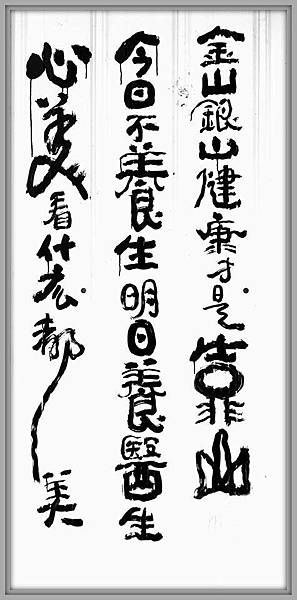 金山銀山健康才是靠山
今日不養生明日養醫生
心美看什么都美